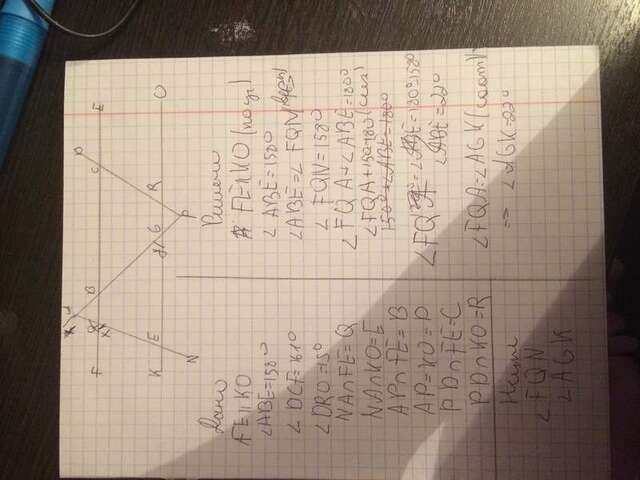 A
F
B
C
D
E
K
E
G
R
O
N
P
Дано
FE||KO
∠ABE=158°
∠DCF=161°
∠DRO=15°
NA∩FE=Q
NA∩KO=E
AP∩FE=B
AP=KO=P
PD∩FE=C
PD∩KO=R
∠FQN
∠AGK
Решение
FE||KO (по ус)
∠ABE=158°
∠ABE=∠FQN
∠FQN=158°
∠FQA+∠ABE=180°
∠FQA+158=180 (см)
150°+∠ABE=180°
∠FQA=∠ABE=180°-158°
∠ABE=22°
∠FQA=∠AGK (соот)
=> ∠AGK=22°